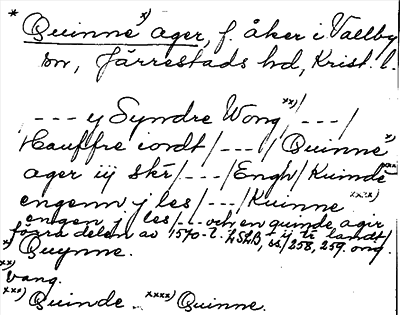 * Quinne x) ager, f. åker i Vallby
sn, Järrestads hd, Krist. l.
, - - - y Syndre Wong xx) / - - - /
Hauffre iordt / - - - / Quinne x)
ager iij skr / - - - / Engh / Kuinde xxx)
engenn j les / - - - / Kuinne xxxx)
engen j les / - - - och en quinde agir
förra delen av 1570-t. LSLB, ss. 258, 259. orig.
x) Quynne.
xx) vang.
xxx) Quinde. xxxx) Quinne.